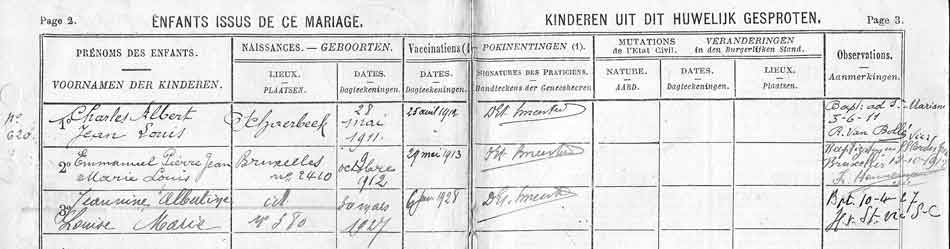 Page 2.
ENFANTS ISSUS DE CE MARIAGE.
KINDEREN UIT DIT HUWELIJK GESPROTEN.
Page 3.
PRÉNOMS DES ENFANTS.
VOORNAMEN DER KINDEREN.
NAISSANCES. — GEBOORTEN.
LIEUX.
PLAATSEN.
DATES.
Dagteekeningen.
Vaccinations (1
DATES.
Dagteekeningen.
POKINENTINGEN (1).
SIGNATURES DES PRATICIENS.
Handteekens der Geneesheeren
MUTATIONS
de l'Etat Civil.
NATURE.
AARD.
VERANDERINGEN
in den Burgerlijken Stand.
DATES.
Dagteekeningen.
LIEUX.
Plaatsen.
Observations.
Aanmerkingen.
No
626
1o Charles Albert
Jean Louis
28
mai
1911.
25 août 1912
Bapt. ad S.
3-6-11
R. Van
2o Emmanuel Pierre Jean
Marie Louis
Bruxelles
no 2410
octobre
1912
29 mai 1913
Bruxelles 13-10-
3o Jeannine Albertine
Louise Marie
id
no 580
30 mars
1927
1928
Bpt. 10-4-27